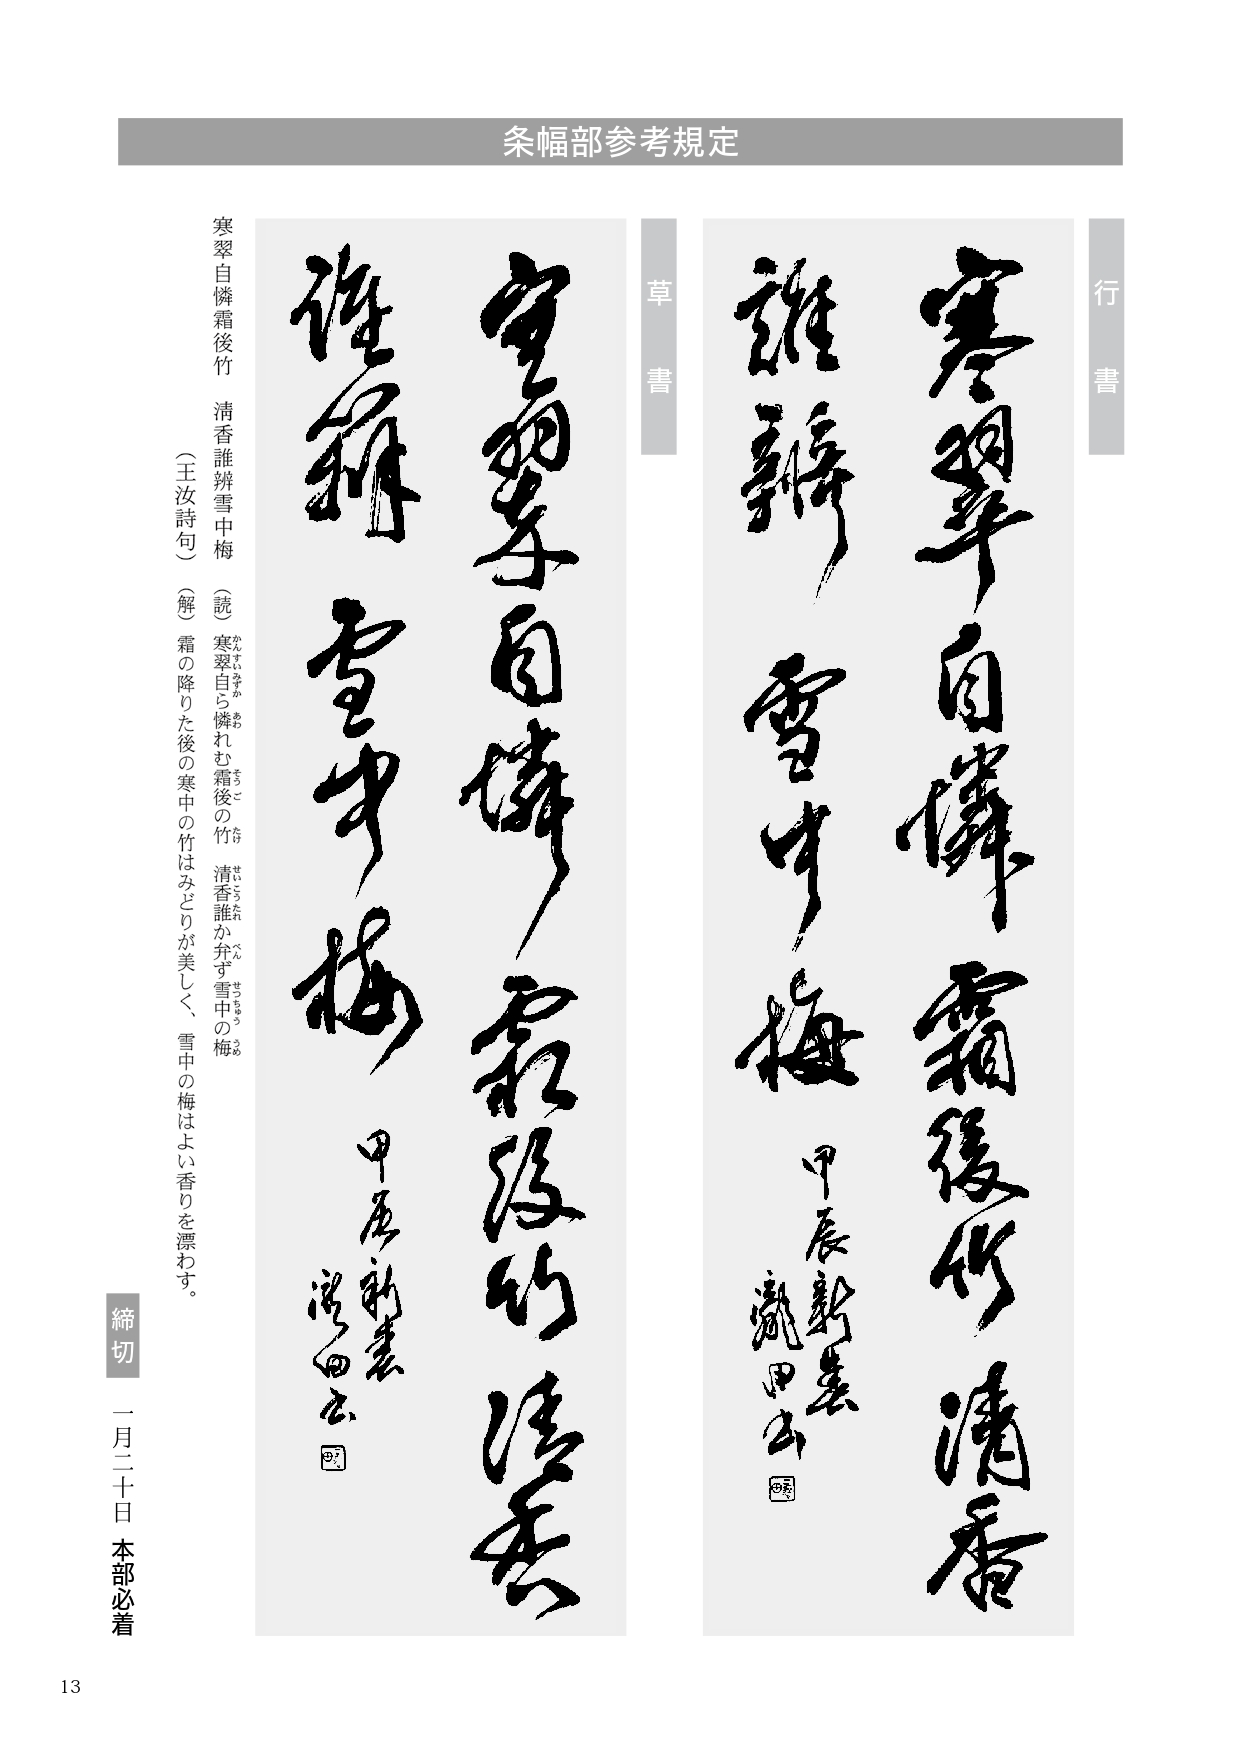 条幅部参考規定
行書
寒翠自憐霜後竹清香
誰辨雪中梅
甲辰新春
瀧田書
草書
寒翠自憐霜後竹清香
誰辨雪中梅
甲辰新春
瀧田書
寒翠自憐霜後竹　清香誰辨雪中梅　（読）寒翠自ら憐れむ霜後の竹　清香誰か弁ず雪中の梅
かんすいみずか　あわ　そうご　たけ　せいこうたれ　べん　せつちゅう　うめ
（王汝詩句）（解）霜の降りた後の寒中の竹はみどりが美しく、雪中の梅はよい香りを漂わす。
締切　一月二十日　本部必着
13